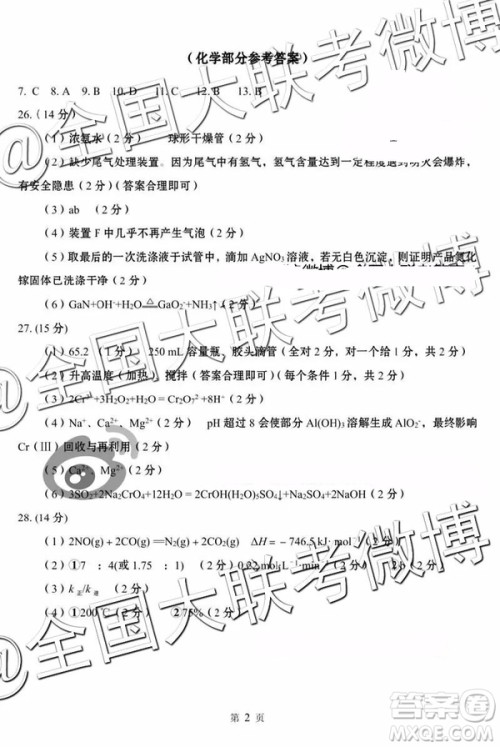 (化学部分参考答案)
7. C 8. A 9. B 10. D 11. C 12. B 13. B
26. (14 分)
(1) 浓氨水 (2 分) 球形干燥管 (2 分)
(2) 缺少尾气处理装置。因为尾气中有氢气，氢气含量达到一定程度遇到明火会爆炸，
有安全隐患 (2 分) (答案合理即可)
(3) ab (2 分)
(4) 装置 F 中几乎不再产生气泡 (2 分)
(5) 取最后的一次洗涤液于试管中，滴加 AgNO3 溶液，若无白色沉淀，则证明产品氮化
镓固体已洗涤干净 (2 分)
(6) GaN+OH-+H2O △ GaO2-+NH3↑ (2 分)
27. (15 分)
(1) 65.2 (1 分) 250 mL 容量瓶，胶头滴管 (2 分，对一个给 1 分，共 2 分)
(2) 升高温度 (加热) 搅拌 (答案合理即可) (每个条件 1 分，共 2 分)
(3) +3H2O2+H2O=Cr2O72-+8H+ (2 分)
(4) Na+、Ca2+、Mg2+ (2 分) pH 超过 8 会使部分 Al(OH)3 溶解生成 AlO2-，最终影响
Cr (Ⅲ) 回收与再利用 (2 分)
(5) Ca2+、Mg2+ (2 分)
(6) 3SO2+2Na2CrO4+ =2CrOH(H2O)5SO4↓+Na2SO4 (2 分)
28. (14 分)
(1) 2NO(g) + 2CO(g) N2(g) + 2CO2(g) ΔH=－746.5 kJ·mol-1 (2 分)
(2) ①7 ： 4(或 1.75 ： 1) (2 分) (2 分)
(3) k正/k逆 (2 分)
(4) ①200℃ (2 分) (2 分)
第 2 页
@全国大联考微博
@全国大联考微博
@全国大联考微博
答案圈
MXQE.COM